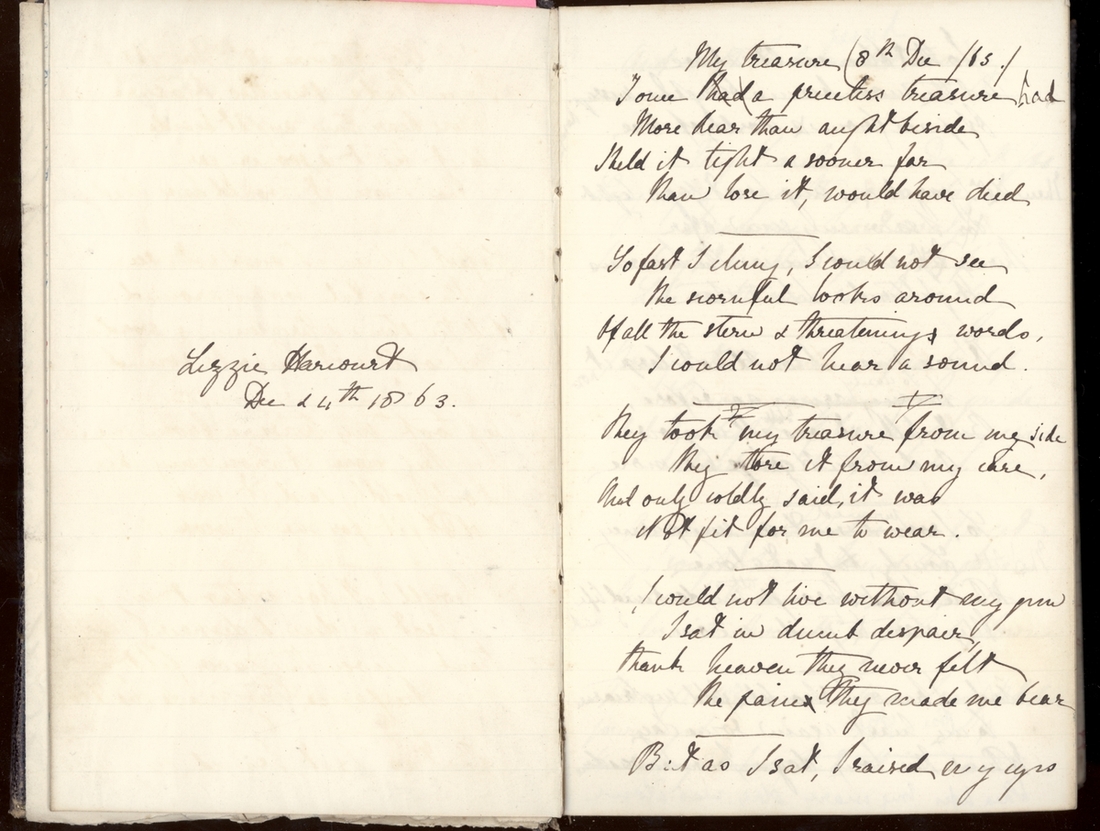 Lizzie Harcourt
Dec 24th 1863.
My treasure (8th Dec /65.)
I once had a priceless treasure had
More dear than aught beside
I held it tight & sooner far
Than lose it, would have died
So fast I clung, I could not see
The scornful looks around
Of all the stern & threatening words,
I could not hear a sound.
They took my treasure from my side
They tore it from my care,
And only coldly said, it was
Not fit for me to wear.
I could not live without my gem
I sat in dumb despair,
Thank heaven they never felt
The pain they made me bear
But as I sat, I raised my eyes